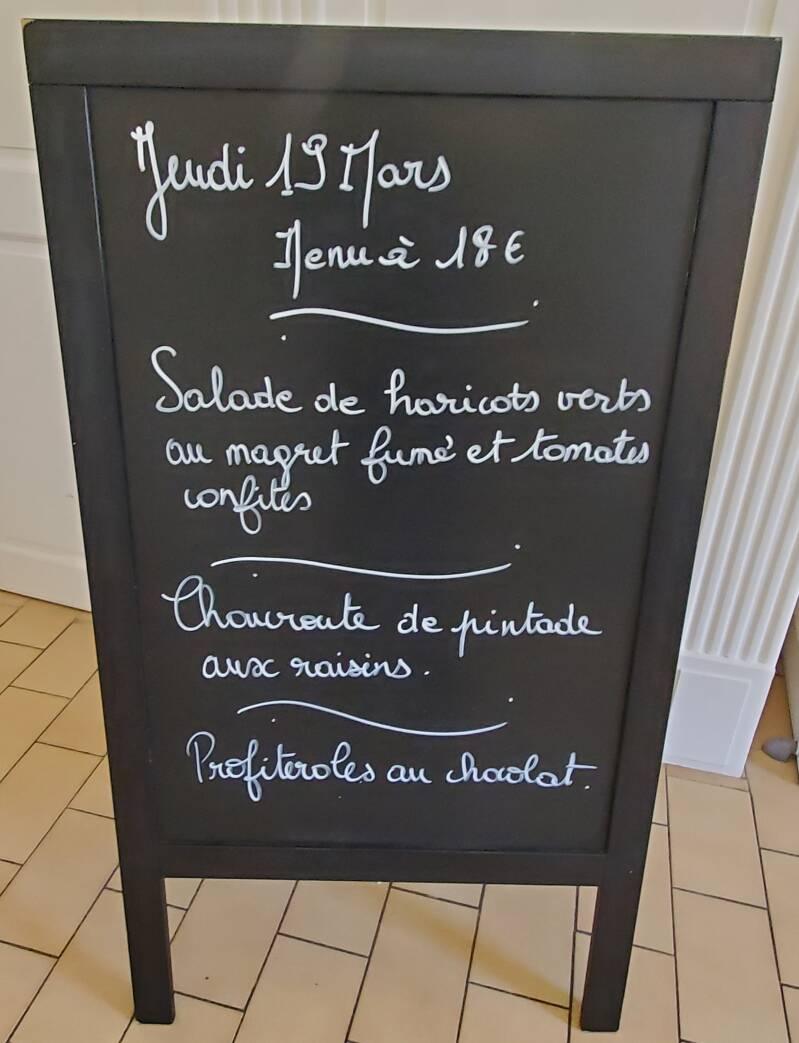 Jeudi 19 Mars
Menu à 18 €
Salade de haricots verts
au magret fumé et tomates
confites
Choucroute de pintade
aux raisins.
Profiteroles au chocolat.